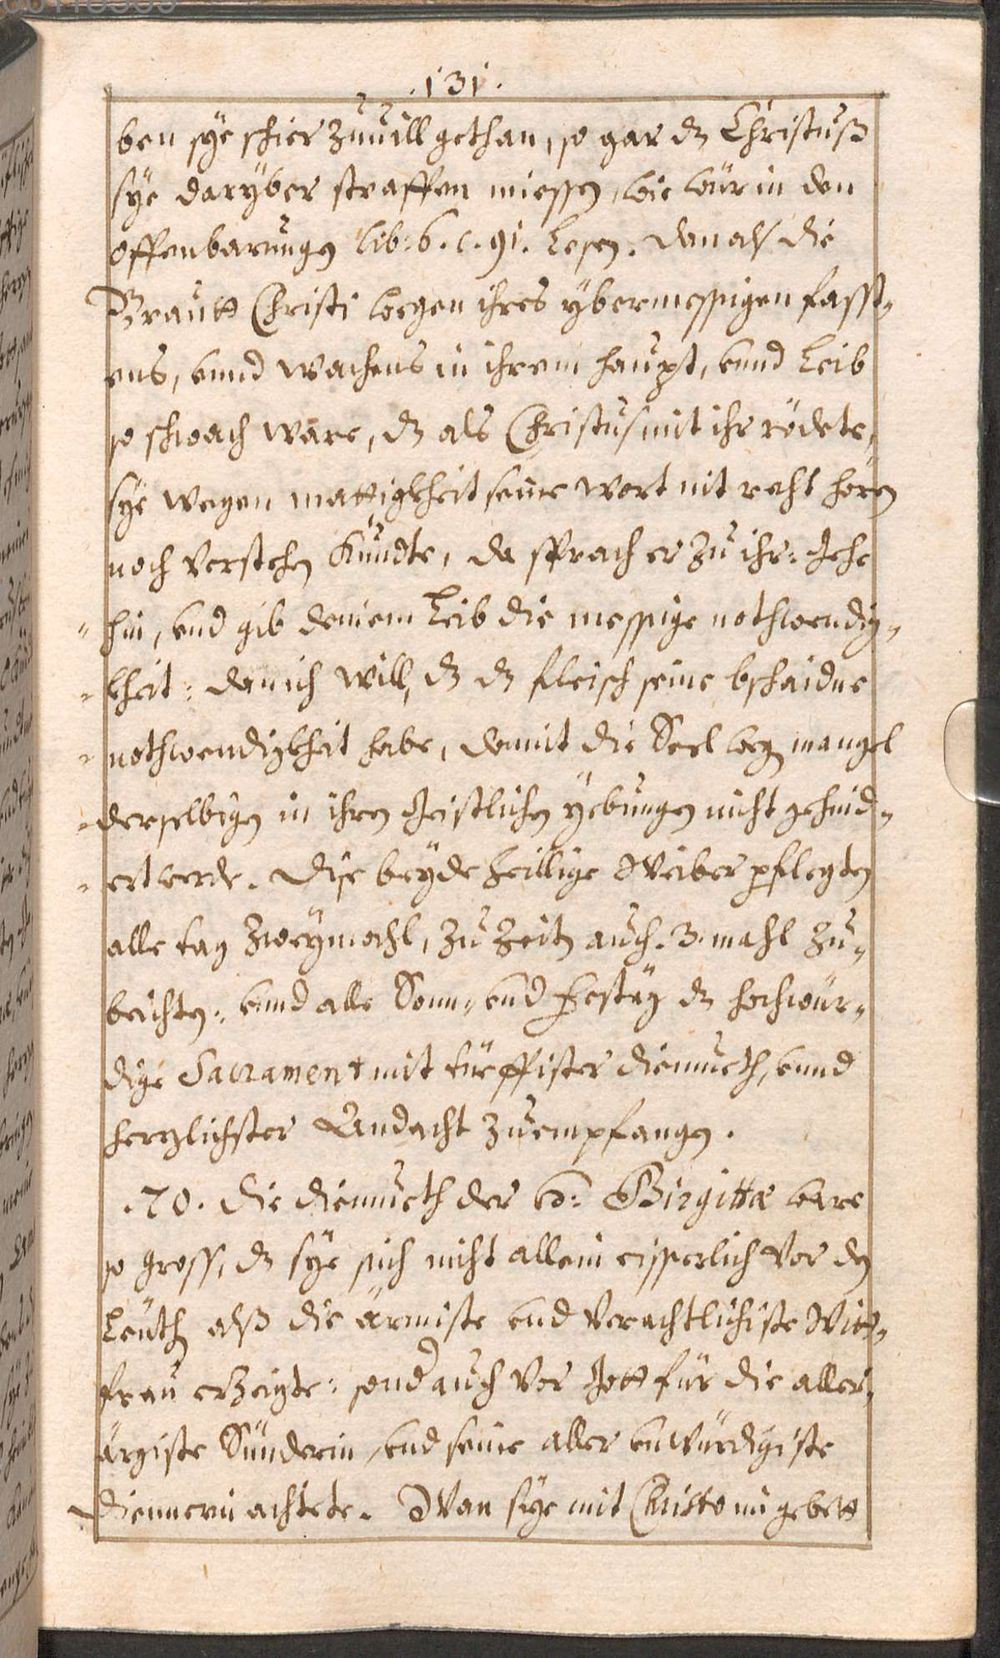 .131.
ben sÿe schier zuuill gethan, so gar dz Christuß
sÿe darÿber straffen miessen, wie wür in den
offenbarungen lib: 6. c. 91. Lesen. dan als die
Brautt Christi wegen ihres ÿbermessigen fasst„
ens, vnnd wachens in ihrem haupt, vnnd Leib
so schwach ware, dz als Christus mit ihr rödete,
sÿe wegen mattigkheit seine wort nit recht hören
noch verstehen Kundte, da sprach er zu ihr: Gehe
„ hin, vnd gib deinem Leib die messige nothwendig„
„ kheit: dan ich will, dz dz fleisch seine bschaidne
„ nothwendigkheit habe, damit die Seel weg mangel
„ derselbigen in ihren Geistlichen ÿebungen nicht gehind„
„ ert werde. Dise beÿde heillige Weiber pflegten
alle tag zweÿmahl, zu Zeiten auch 3. mahl zu„
beichten: vnnd alle Sonn„ vnd Festäg dz hochwür„
dige Sacrament mit tüeffister diemueth, vnnd
hertzlichster Andacht zuempfangen.
.70. Die diemueth der Birgittæ ware
so gross, dz sÿe sich nicht allein eisserlich vor den
Leüthen alß die ärmiste vnd verachtlichiste Witt„
frau erzeigte: sond auch vor Gott für die aller„
ärgiste Sünderin, vnd seine aller vnwürdigiste
Diennerin achtete. Wan sÿe mit Christo im gebett